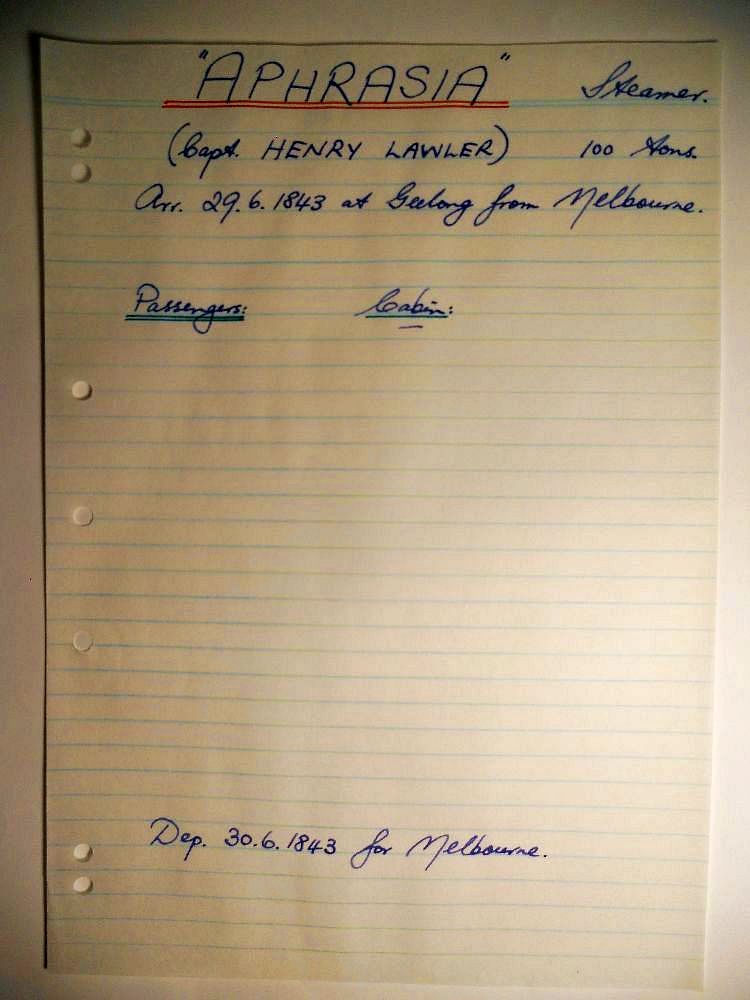 "APHRASIA" Steamer.
(Capt. HENRY LAWLER) 100 Tons.
Arr. 29.6.1843 at Geelong from Melbourne.
Passengers: Cabin:
Dep. 30.6.1843 for Melbourne.